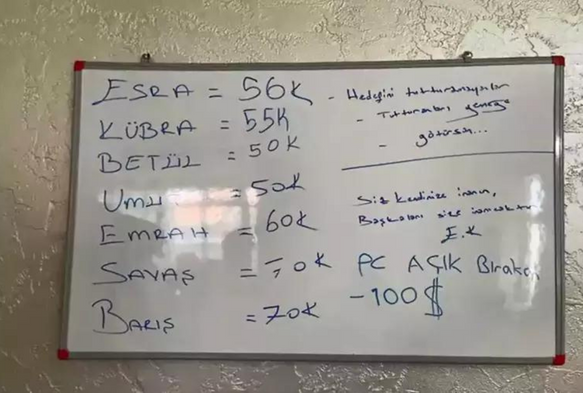 ESRA = 56K
KÜBRA = 55K
BETÜL = 50K
UMUT = 50K
EMRAH = 60K
SAVAŞ = 70K
BARIŞ = 70K
- Hedefini tutturamayanları
- Tutturanları yemeğe
- götürsün...
Siz kendinize inanın,
Başkaları size inanacaktır.
E.K
PC AÇIK Bırakan
-100$